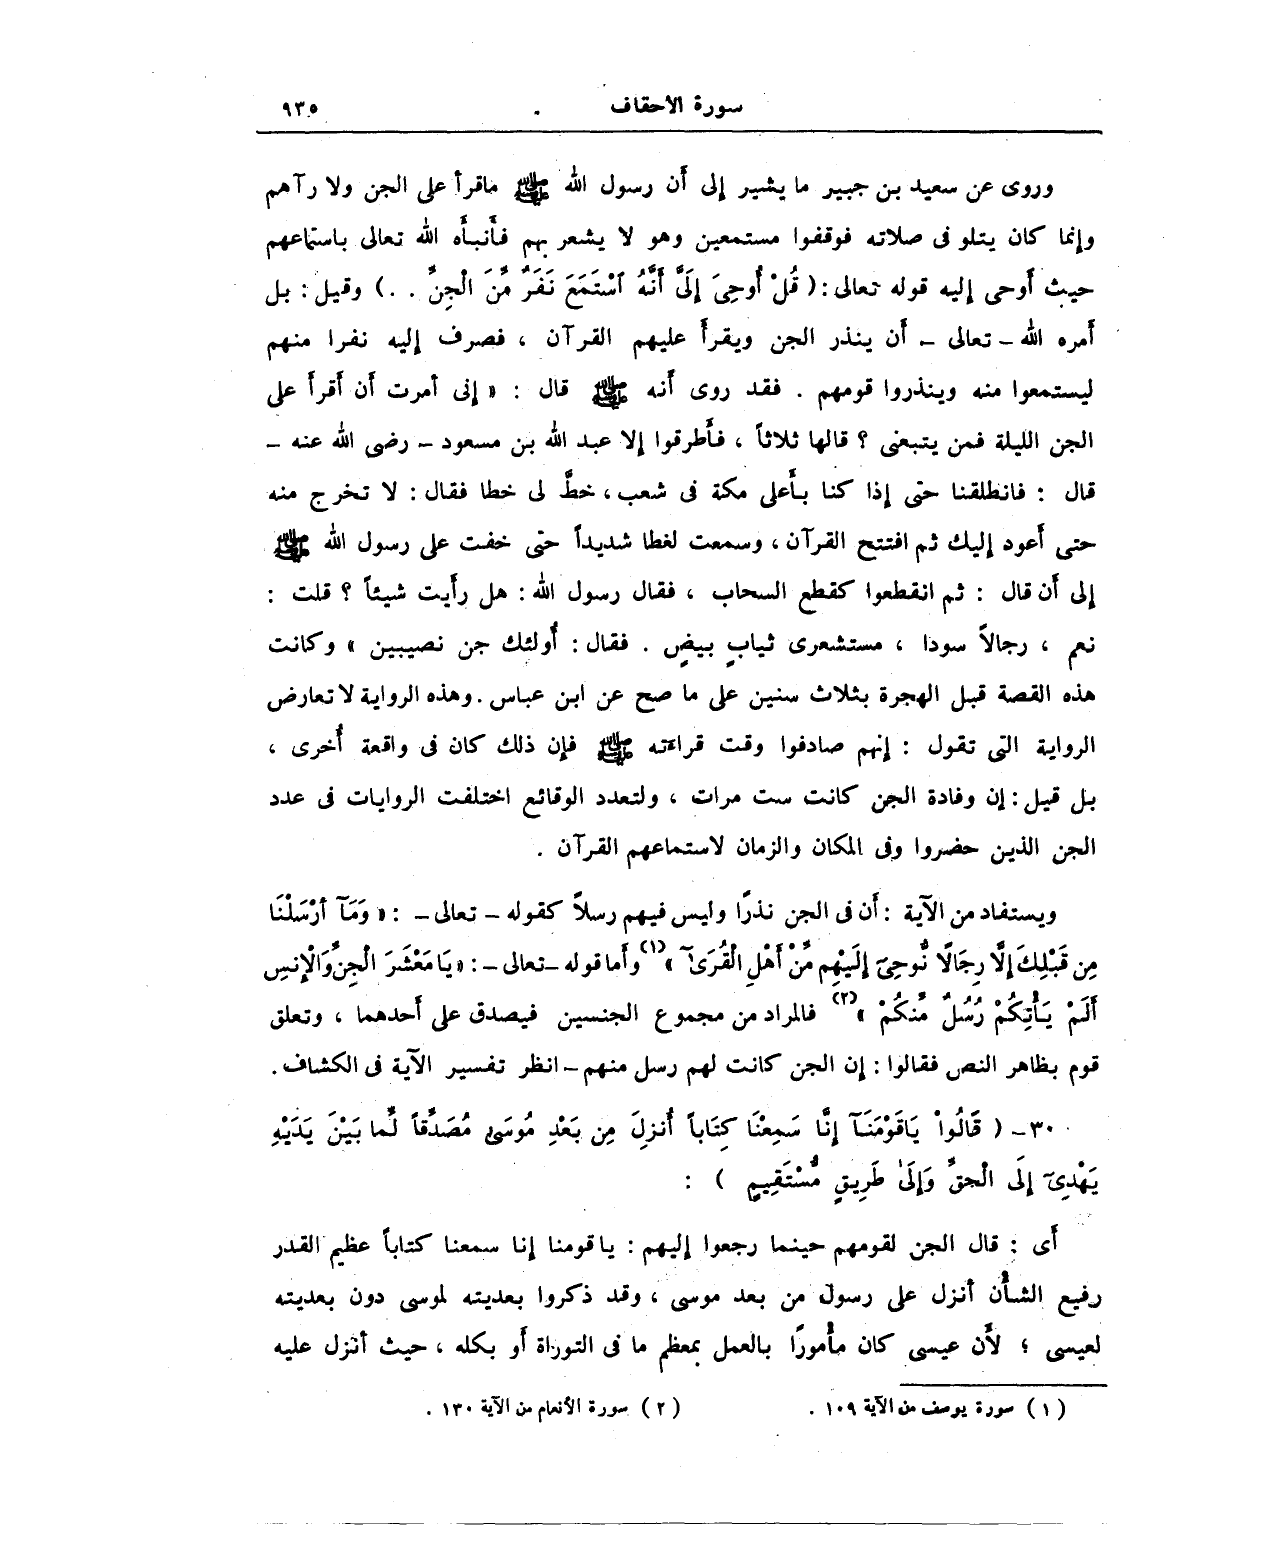 سورة الاحقاف ٩٣٥
وروى عن سعيد بن جبير ما يشير إلى أن رسول الله ﷺ ماقرأ على الجن ولا رآهم
وإنما كان يتلو فى صلاته فوقفوا مستمعين وهو لا يشعر بهم فأنبأه الله تعالى باستماعهم
حيث أوحى إليه قوله تعالى : ( قُلْ أُوحِىَ إِلَىَّ أَنَّهُ ٱسْتَمَعَ نَفَرٌ مِّنَ الْجِنِّ . . ) وقيل : بل
أمره الله – تعالى – أن ينذر الجن ويقرأ عليهم القرآن ، فصرف إليه نفرا منهم
ليستمعوا منه وينذروا قومهم . فقد روى أنه ﷺ قال : « إنى أمرت أن أقرأ على
الجن الليلة فمن يتبعنى ؟ قالها ثلاثاً ، فأطرقوا إلا عبد الله بن مسعود – رضى الله عنه –
قال : فانطلقنا حتى إذا كنا بأعلى مكة فى شعب ، خطَّ لى خطا فقال : لا تخرج منه
حتى أعود إليك ثم افتتح القرآن ، وسمعت لغطا شديداً حتى خفت على رسول الله ﷺ
إلى أن قال : ثم انقطعوا كقطع السحاب ، فقال رسول الله : هل رأيت شيئاً ؟ قلت :
نعم ، رجالاً سودا ، مستشعرى ثيابٍ بيضٍ . فقال : أولئك جن نصيبين » وكانت
هذه القصة قبل الهجرة بثلاث سنين على ما صح عن ابن عباس . وهذه الرواية لا تعارض
الرواية التى تقول : إنهم صادفوا وقت قراءته ﷺ فإن ذلك كان فى واقعة أُخرى ،
بل قيل : إن وفادة الجن كانت ست مرات ، ولتعدد الوقائع اختلفت الروايات فى عدد
الجن الذين حضروا وفى المكان والزمان لاستماعهم القرآن .
ويستفاد من الآية : أن فى الجن نذرًا وليس فيهم رسلاً كقوله – تعالى – : « وَمَآ أَرْسَلْنَا
مِن قَبْلِكَ إِلَّا رِجَالًا نُّوحِىٓ إِلَيْهِم مِّنْ أَهْلِ الْقُرَىٰٓ »(١) وأما قوله – تعالى – : « يَا مَعْشَرَ الْجِنِّ وَالْإِنسِ
أَلَمْ يَأْتِكُمْ رُسُلٌ مِّنكُمْ »(٢) فالمراد من مجموع الجنسين فيصدق على أحدهما ، وتعلق
قوم بظاهر النص فقالوا : إن الجن كانت لهم رسل منهم – انظر تفسير الآية فى الكشاف .
٣٠ – ( قَالُواْ يَاقَوْمَنَآ إِنَّا سَمِعْنَا كِتَاباً أُنزِلَ مِن بَعْدِ مُوسَىٰ مُصَدِّقاً لِّمَا بَيْنَ يَدَيْهِ
يَهْدِىٓ إِلَى الْحَقِّ وَإِلَىٰ طَرِيقٍ مُّسْتَقِيمٍ ) :
أى : قال الجن لقومهم حينما رجعوا إليهم : ياقومنا إنا سمعنا كتاباً عظيم القدر
رفيع الشأن أنزل على رسول من بعد موسى ، وقد ذكروا بعديته لموسى دون بعديته
لعيسى ؛ لأن عيسى كان مأمورًا بالعمل بمعظم ما فى التوراة أو بكله ، حيث أنزل عليه
(١) سورة يوسف من الآية ١٠٩ . (٢) سورة الأنعام من الآية ١٣٠ .